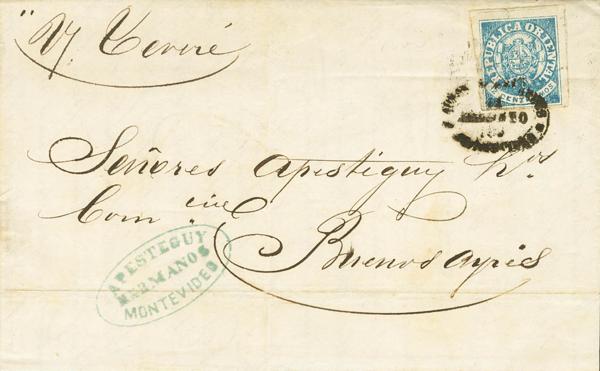 "V. Teveré
REPUBLICA ORIENTAL
CENTECIMOS
Señores Apestiguy hos
Com
Buenos Ayres
APESTEGUY
HERMANOS
MONTEVIDEO